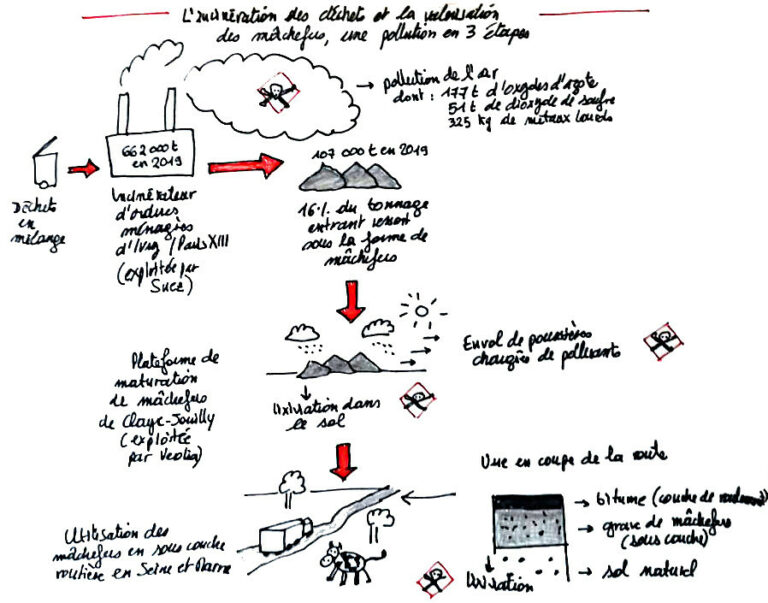 L'incinération des déchet et la valorisation
des mâchefers, une pollution en 3 étapes
→ pollution de l'air
dont : 177 t d'oxydes d'azote
51 t de dioxyde de soufre
325 kg de métaux lourds
662 000 t
en 2019
107 000 t en 2019
Déchets
en
mélange
Incinérateur
d'ordures
ménagères
d'Ivry / Paris XIII
(exploitée par
Suez)
16% du tonnage
entrant ressort
sous la forme de
mâchefers
Envol de poussières
chargées de polluants
Plateforme de
maturation
de mâchefers
de Claye-Souilly
(exploitée
par Veolia)
lixiviation dans
le sol
Vue en coupe de la route
→ bitume (couche de roulement)
→ grave de mâchefers
(sous couche)
→ sol naturel
lixiviation
Utilisation des
mâchefers en sous couche
routière en Seine et Marne